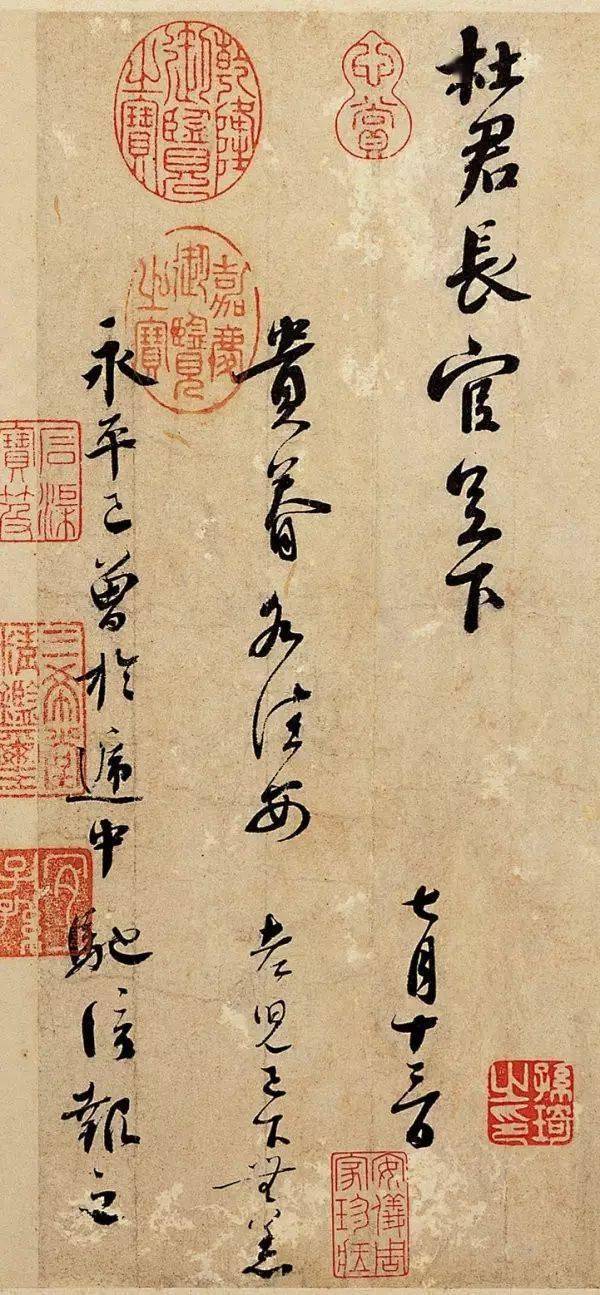 杜君長官足下
七月十三日
貴眷各佳安 老兒已下無恙
永平已曾於遞中馳信報之
心賞
乾隆御覽之寶
嘉慶御覽之寶
安儀周家珍藏
石渠寶笈
三希堂精鑑璽
宜子孫